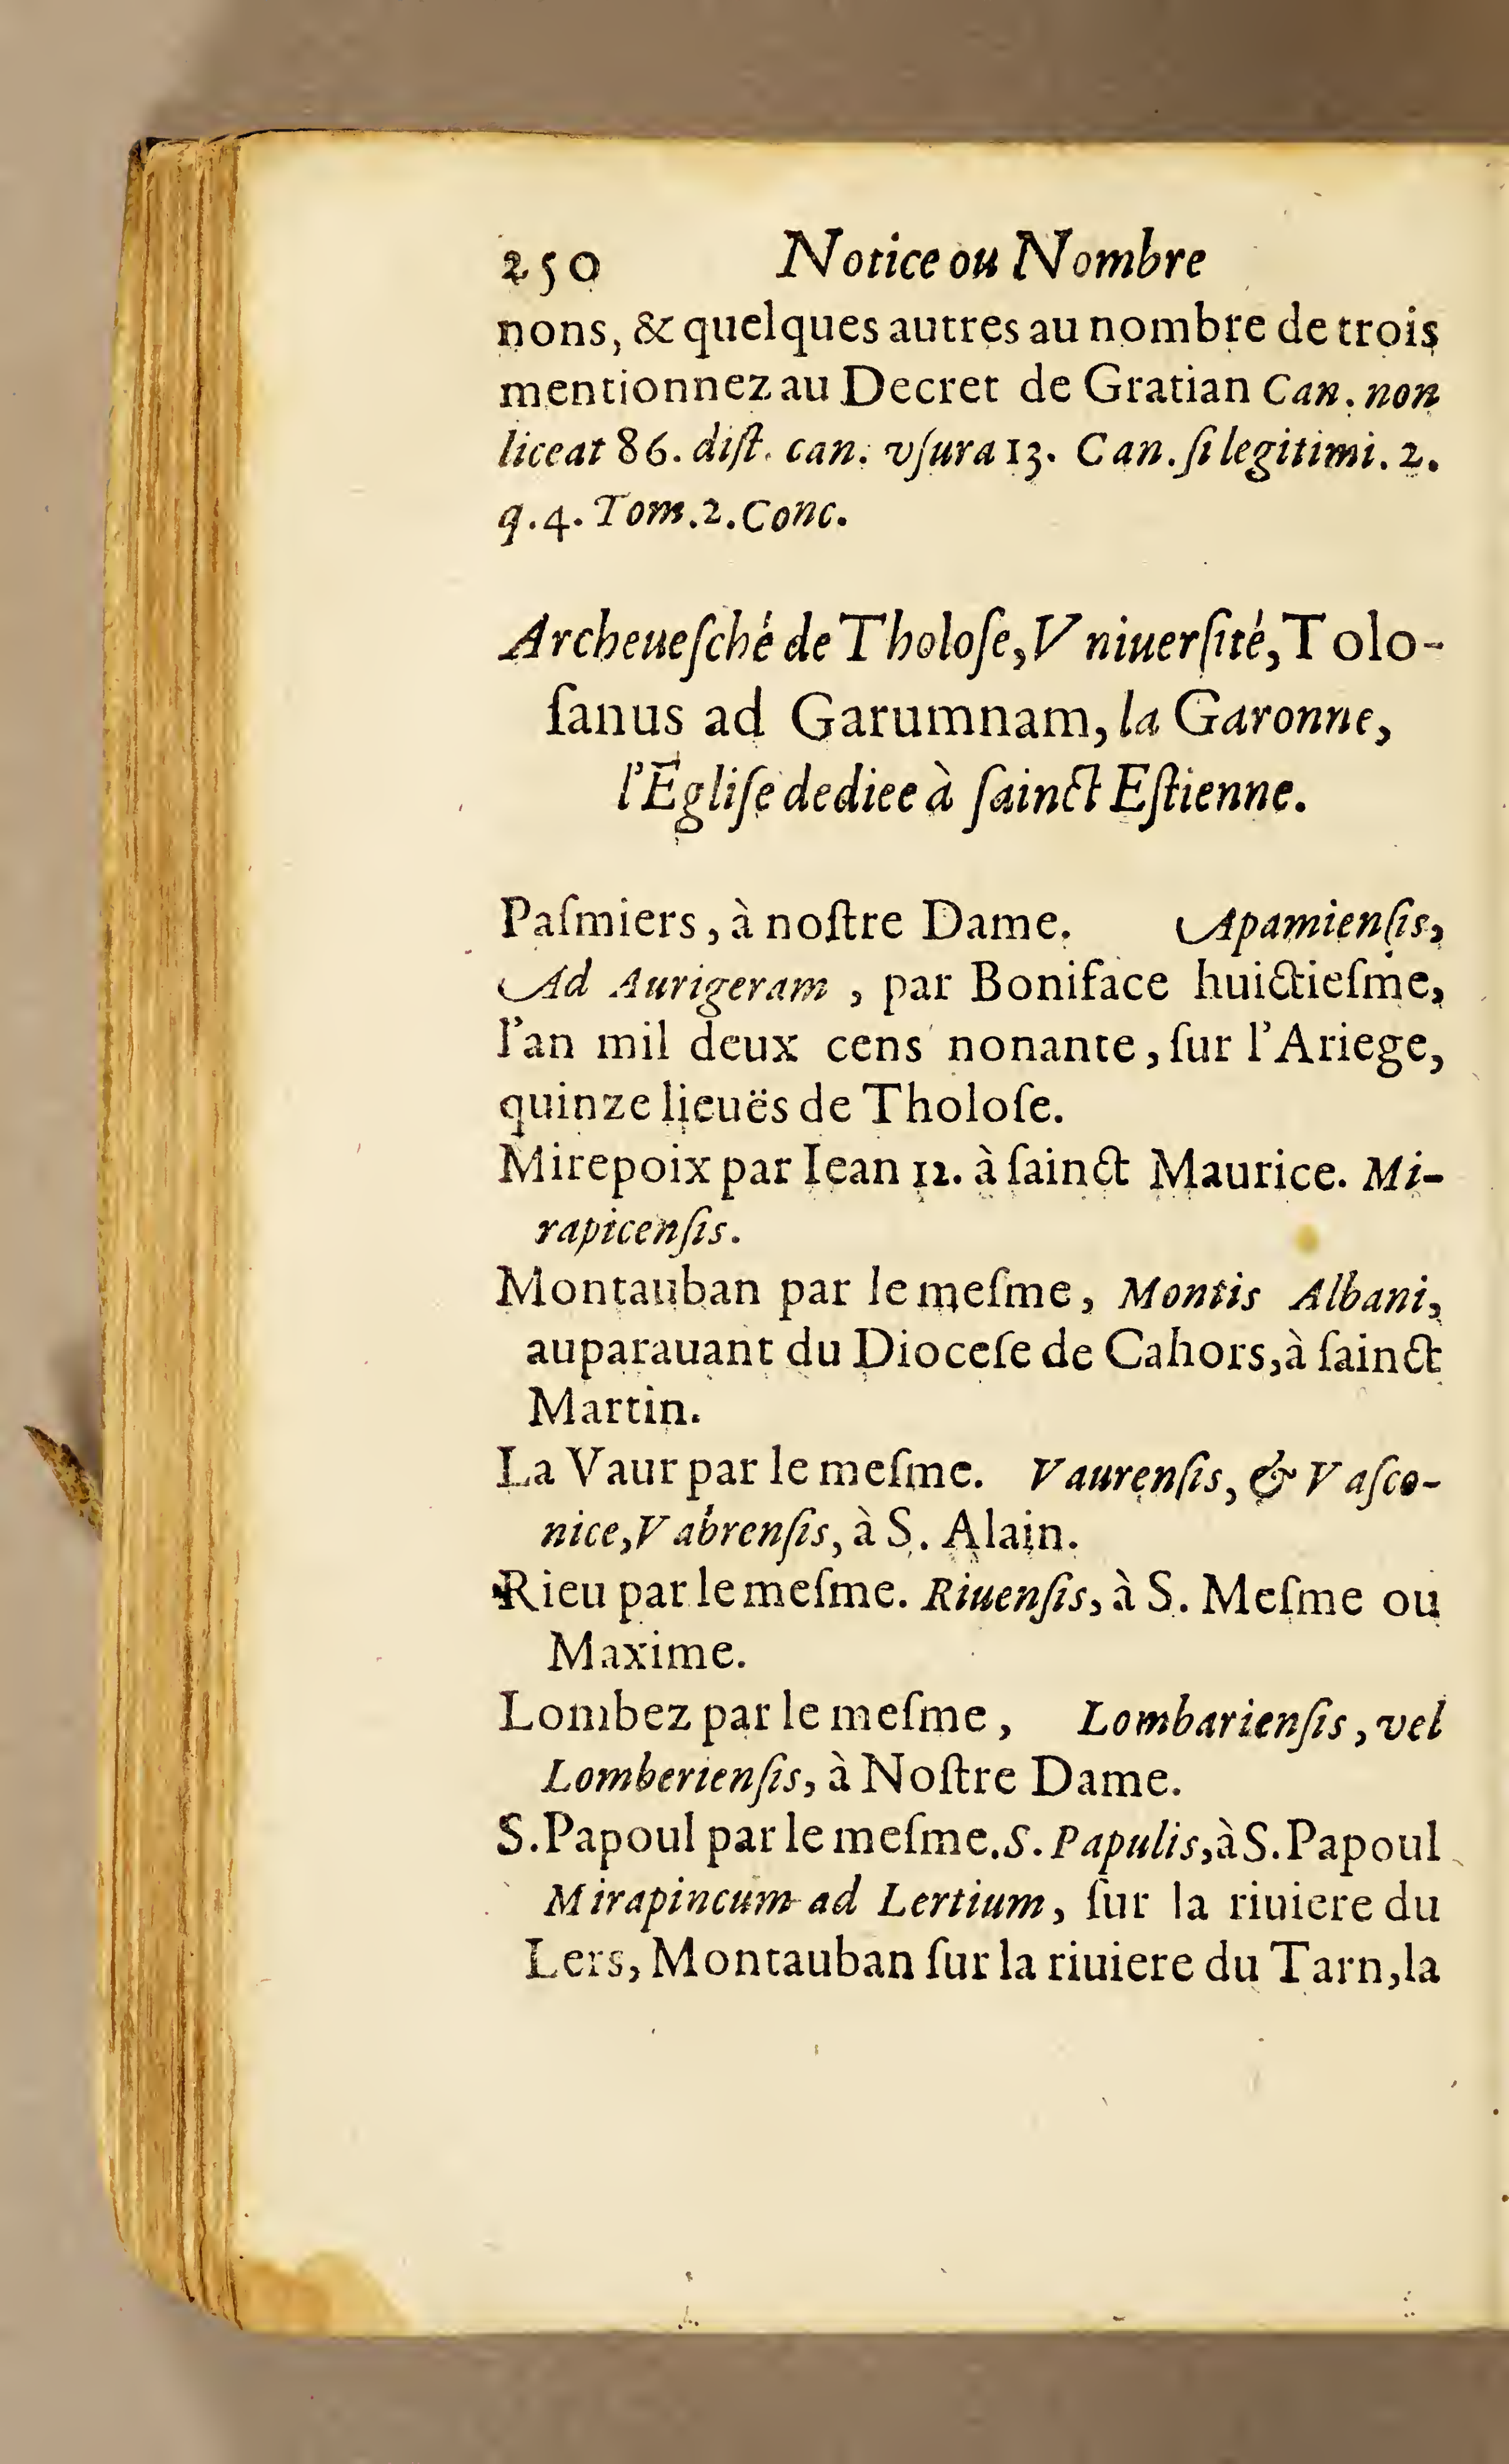 250 Notice ou Nombre
nons, & quelques autres au nombre de trois
mentionnez au Decret de Gratian Can. non
liceat 86. diſt. can. vſura 13. Can. ſi legitimi. 2.
q. 4. Tom. 2. Conc.
Archeueſché de Tholoſe, Vniuerſité, Tolo-
ſanus ad Garumnam, la Garonne,
l'Egliſe dediee à ſainct Eſtienne.
Paſmiers, à noſtre Dame. Apamienſis,
Ad Aurigeram, par Boniface huictieſme,
l'an mil deux cens nonante, ſur l'Ariege,
quinze lieuës de Tholoſe.
Mirepoix par Iean 12. à ſainct Maurice. Mi-
rapicenſis.
Montauban par le meſme, Montis Albani,
auparauant du Dioceſe de Cahors, à ſainct
Martin.
La Vaur par le meſme. Vaurenſis, & Vaſco-
nice, Vabrenſis, à S. Alain.
Rieu par le meſme. Riuenſis, à S. Meſme ou
Maxime.
Lombez par le meſme, Lombarienſis, vel
Lomberienſis, à Noſtre Dame.
S. Papoul par le meſme. S. Papulis, à S. Papoul
Mirapincum ad Lertium, ſur la riuiere du
Lers, Montauban ſur la riuiere du Tarn, la